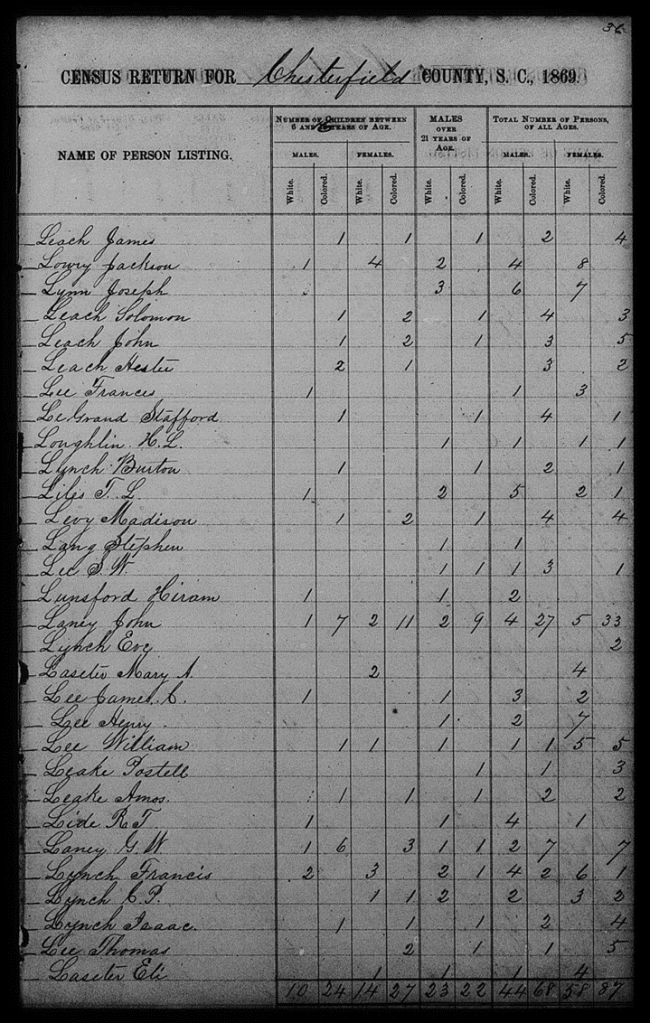 36
CENSUS RETURN FOR Chesterfield COUNTY, S. C., 1869.
NAME OF PERSON LISTING.
NUMBER OF CHILDREN BETWEEN 6 AND YEARS OF AGE.
MALES OVER 21 YEARS OF AGE.
TOTAL NUMBER OF PERSONS, OF ALL AGES.
MALES. FEMALES. MALES. FEMALES.
White. Colored. White. Colored. White. Colored. White. Colored. White. Colored.
Leach James 1 1 1 2 4
Lowry Jackson 1 4 2 4 8
Lynn Joseph 3 6 7
Leach Solomon 1 2 1 4 3
Leach John 1 2 1 3 5
Leach Hester 2 1 3 2
Lee Frances 1 1 3
LeGrand Stafford 1 1 4 1
Loughlin H. L. 1 1 1 1
Lynch Burton 1 1 2 1
Liles T. L. 1 2 5 2 1
Levy Madison 1 2 1 4 4
Lang Stephen 1 1
Lee S. W. 1 1 1 3 1
Lunsford Hiram 1 1 2
Laney John 1 7 2 11 2 9 4 27 5 33
Lynch Eve 2
Laseter Mary A. 2 4
Lee James C. 1 1 3 2
Lee Henry 1 2 7
Lee William 1 1 1 1 1 5 5
Leake Postell 1 1 3
Leake Amos. 1 1 1 2 2
Lide R. T. 1 1 4 1
Laney G. W 1 6 3 1 1 2 7 7
Lynch Francis 2 3 2 1 4 2 6 1
Lynch C. P. 1 1 2 2 3 2
Lynch Isaac. 1 1 1 2 4
Lee Thomas 2 1 1 5
Laseter Eli 1 1 1 4
10 24 14 27 23 22 44 68 58 87